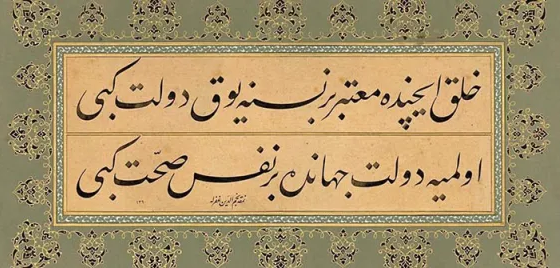 خلق ایچنده معتبر بر نسنه یوق دولت کبی
اولمیه دولت جهانده بر نفس صحّت کبی